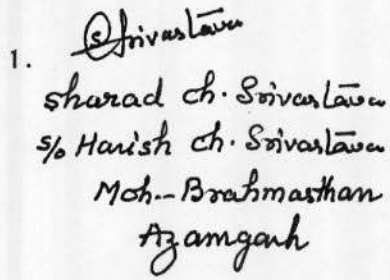 1. Ⓢ Srivastāva
sharad ch. Srivastāva
s/o Harish ch. Srivastāva
Moh-- Brahmasthan
Azamgarh